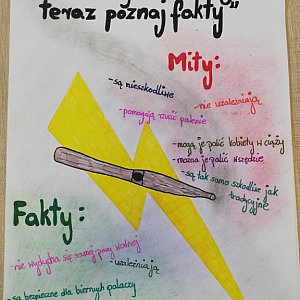 teraz poznaj fakty"
Mity:
-są nieszkodliwe
-nie uzależniają
-pomagają rzucić palenie
-mogą je palić kobiety w ciąży
-można je palić wszędzie
-są tak samo szkodliwe jak
tradycyjne
Fakty:
-nie wydycha się samej pary wodnej
-uzależniają
-są bezpieczne dla biernych palaczy